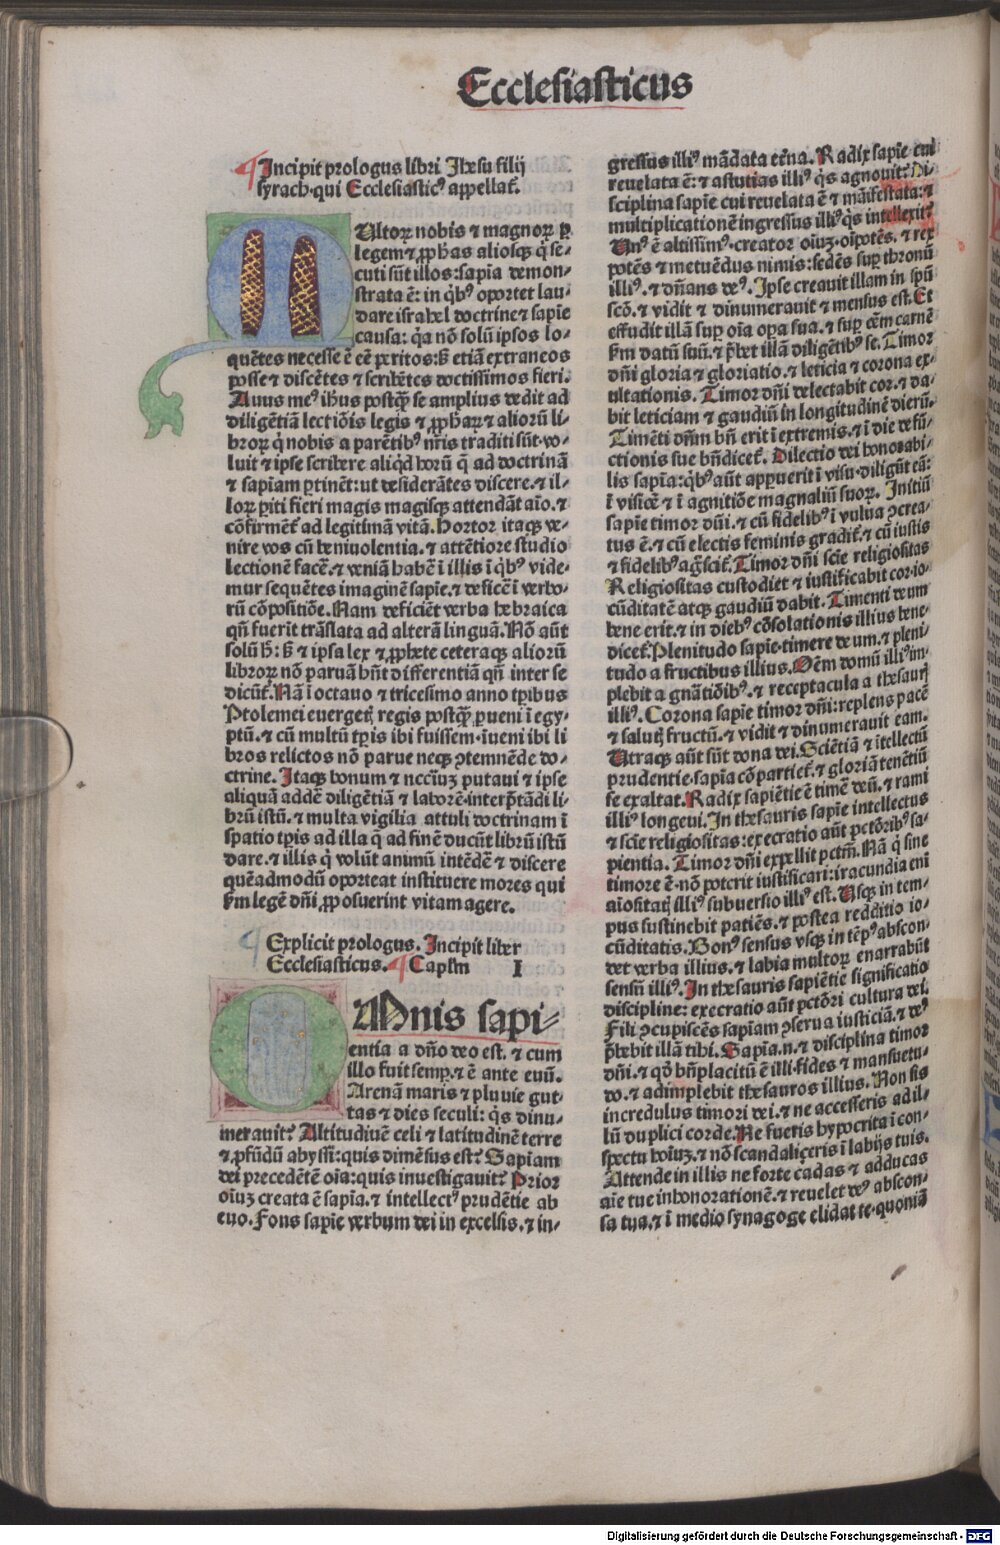 Ecclesiasticus
¶ Incipit prologus libri Jhesu filij
syrach·qui Ecclesiasticꝰ appellat̃.
MUltoꝝ nobis ⁊ magnoꝝ ꝑ
legem ⁊ ꝓphãs aliosqꝫ q̃ se-
cuti sũt illos: sapĩa demon-
strata ẽ: in qͥbꝰ oportet lau-
dare israhel doctrine ⁊ sapĩe
causa: qͥa nõ solũ ipsos lo-
quẽtes necesse ẽ eẽ ꝑitos: sꝫ etiã extraneos
posse ⁊ discẽtes ⁊ scribẽtes doctissimos fieri.
Auus meꝰ ihus postqͣ̃ se amplius dedit ad
diligẽtiã lectiõis legis ⁊ ꝓphaꝝ ⁊ alioꝝ li-
broꝝ qͥ nobis a parẽtibꝰ nr̃is traditi sũt·vo-
luit ⁊ ipse scribere aliqͥd hoꝝ q̃ ad doctrinã
⁊ sapiam ꝑtinẽt: ut desiderãtes discere·⁊ il-
loꝝ ꝑiti fieri magis magisqꝫ attendãt aĩo·⁊
cõfirmẽt̃ ad legitimã vitã. Hortor itaqꝫ ve-
nire vos cũ beniuolentia·⁊ attẽtiore studio
lectionẽ facẽ·⁊ veniã habẽ ĩ illis ĩ qͥbꝰ vide-
mur sequẽtes imaginẽ sapĩe·⁊ deficẽ ĩ verbo-
rũ cõpositiõe. Nam deficiẽt verba hebraica
qñ fuerĩt trãslata ad alterã linguã. Nõ aũt
solũ h̃: sꝫ ⁊ ipsa lex ⁊ ꝓphete ceteraqꝫ alioꝝ
libroꝝ nõ paruã hñt differentiã qñ inter se
dicũt̃. Nã ĩ octauo ⁊ tricesimo anno tꝑibus
Ptolemei euergetꝭ regis postqͣ̃ ꝑueni ĩ egy-
ptũ·⁊ cũ multũ tꝑis ibi fuissem·ĩueni ibi li
bros relictos nõ parue neqꝫ ↄtemnẽde do-
ctrine. Itaqꝫ bonum ⁊ nccĩuꝫ putaui ⁊ ipse
aliquã addẽ diligẽtiã ⁊ laborẽ·interp̃tãdi li-
brũ istũ·⁊ multa vigilia attuli doctrinam ĩ
spatio tꝑis ad illa q̃ ad finẽ ducũt librũ istũ
dare·⁊ illis qͥ volũt animũ intẽdẽ ⁊ discere
quẽadmodũ oporteat instituere mores qui
sꝫm legẽ dñi ꝓposuerint vitam agere.
¶ Explicit prologus. Incipit liber
Ecclesiasticus. ¶ Caplm̃ I
OMnis sapi-
entia a dño deo est·⁊ cum
illo fuit semꝑ·⁊ ẽ ante euũ.
Arenã maris ⁊ pluuie gut-
tas ⁊ dies seculi: qͥs dinu-
merauit? Altitudinẽ celi ⁊ latitudinẽ terre
⁊ ꝓfũdũ abyssi: quis dimẽsus est? Sapiam
dei precedẽtẽ oĩa: quis inuestigauit? Prior
oĩuꝫ creata ẽ sapĩa·⁊ intellectꝰ prudẽtie ab
euo. Fons sapĩe verbum dei in excelsis·⁊ in-
gressus illiꝰ mãdata et̃na. Radix sapĩe cui
reuelata ẽ: ⁊ astutias illiꝰ qͥs agnouit? Di-
sciplina sapĩe cui reuelata ẽ ⁊ mãifestata: ⁊
multiplicationẽ ingressus illiꝰ qͥs intellexit?
Unꝰ ẽ altissimꝰ·creator oĩuꝫ·oĩpotẽs·⁊ rex
potẽs ⁊ metuẽdus nimis: sedẽs suꝑ thronũ
illiꝰ·⁊ dñans deꝰ. Ipse creauit illam in spũ
scõ·⁊ vidit ⁊ dinumerauit ⁊ mensus est. Et
effudit illã suꝑ oĩa oꝑa sua·⁊ suꝑ oẽm carnẽ
sꝫm datũ suũ·⁊ p̃bet illã diligẽtibꝰ se. Timor
dñi gloria ⁊ gloriatio·⁊ leticia ⁊ corona ex-
ultationis. Timor dñi delectabit cor·⁊ da-
bit leticiam ⁊ gaudiũ in longitudinẽ dierũ.
Timẽti dñm bñ erit ĩ extremis·⁊ ĩ die defũ-
ctionis sue bñdicet̃. Dilectio dei honorabi-
lis sapĩa: qͥbꝰ aũt apꝑuerit ĩ visu·diligũt eã:
ĩ visiõe ⁊ ĩ agnitiõe magnaliũ suoꝝ. Initiũ
sapĩe timor dñi·⁊ cũ fidelibꝰ ĩ vulua ↄcrea-
tus ẽ·⁊ cũ electis feminis gradit̃·⁊ cũ iustis
⁊ fidelibꝰ agͦscit̃. Timor dñi scĩe religiositas
Religiositas custodiet ⁊ iustificabit cor·io-
cũditatẽ atqꝫ gaudiũ dabit. Timenti deum
bene erit·⁊ in diebꝰ cõsolationis illius bene-
dicet̃. Plenitudo sapĩe·timere deum·⁊ pleni-
tudo a fructibus illius. Oẽm domũ illiꝰ im-
plebit a gñatiõibꝰ·⁊ receptacula a thesaurꝭ
illiꝰ. Corona sapĩe timor dñi: replens pacẽ
⁊ salutꝭ fructũ·⁊ vidit ⁊ dinumerauit eam.
Utraqꝫ aũt sũt dona dei. Sciẽtiã ⁊ ĩtellectũ
prudentie·sapĩa cõpartiet̃·⁊ gloriã tenẽtiũ
se exaltat. Radix sapiẽtie ẽ timẽ deũ·⁊ rami
illiꝰ longeui. In thesauris sapĩe intellectus
⁊ scĩe religiositas: execratio aũt pctõribꝰ sa-
pientia. Timor dñi expellit pctm̃. Nã qͥ sine
timore ẽ·nõ poterit iustificari: iracundia enĩ
aĩositatꝭ illiꝰ subuersio illiꝰ est. Usqꝫ in tem-
pus sustinebit patiẽs·⁊ postea redditio io-
cũditatis. Bonꝰ sensus vsqꝫ in tẽpꝰ abscon-
det verba illius·⁊ labia multoꝝ enarrabũt
sensũ illiꝰ. In thesauris sapiẽtie significatio
discipline: execratio aũt pctõri cultura dei.
Fili ↄcupiscẽs sapiam ↄserua iusticiã·⁊ deꝰ
p̃bebit illã tibi. Sapĩa·n·⁊ disciplina timor
dñi·⁊ qͦd bñplacitũ ẽ illi·fides ⁊ mansuetu-
do·⁊ adimplebit thesauros illius. Non sis
incredulus timori dei·⁊ ne accesseris ad il-
lũ duplici corde. Ne fueris hypocrita ĩ con-
spectu hoĩuꝫ·⁊ nõ scandaliçeris ĩ labijs tuis.
Attende in illis ne forte cadas ⁊ adducas
aĩe tue inhonorationẽ·⁊ reuelet deꝰ abscon-
sa tua·⁊ ĩ medio synagoge elidat te·quoniã
Digitalisierung gefördert durch die Deutsche Forschungsgemeinschaft - DFG